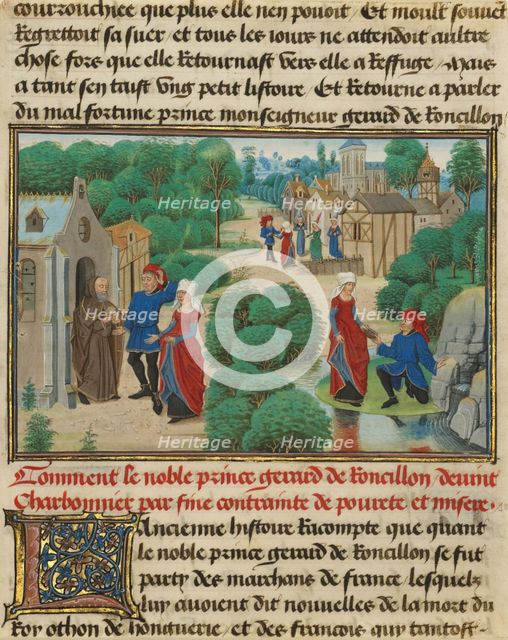 courrouchiee que plus elle nen pouoit / Et moult souuet
Regrettoit sa suer et tous les iours ne attendoit aultre
chose fors que elle Retournast vers elle a Reffuge / Mais
a tant sen taist vng petit listoire / Et Retourne a parler
du mal fortune prince monseigneur gerard de Roncillon
Heritage Images
Heritage Images
Heritage Images
Heritage Images
Heritage Images
Heritage Images
C
Comment le noble prince gerard de Roncillon / deuint
Charbonnier par fine contrainte de pourete et misere .
Lancienne histoire Racompte que quant
le noble prince gerard de Roncillon se fut
party des marchans de france lesquelz
luy auoient dit nouuelles de la mort du
Roy othon de honguerie / et des francois quy tantost